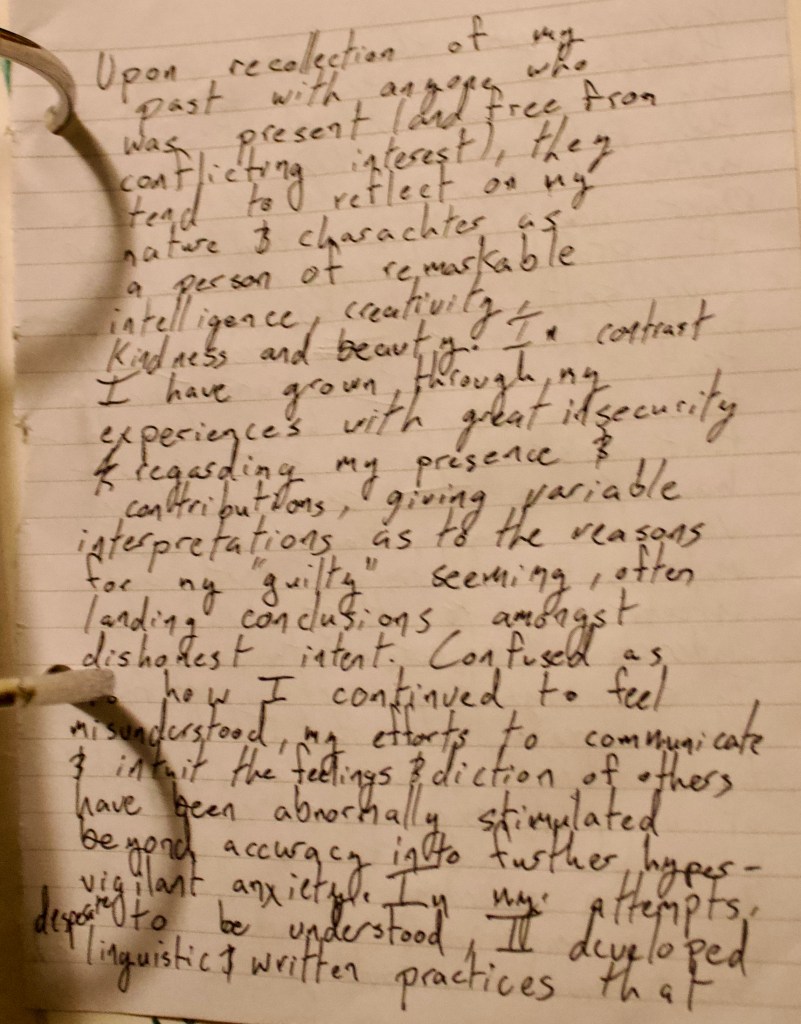 Upon recollection of my
past with anyone who
was present (and free from
conflicting interest), they
tend to reflect on my
nature & charachter as
a person of remarkable
intelligence, creativity,
kindness and beauty. In contrast
I have grown through my
experiences with great insecurity
& regarding my presence &
contributions, giving variable
interpretations as to the reasons
for my "guilty" seeming, often
landing conclusions amongst
dishonest intent. Confused as
to how I continued to feel
misunderstood, my efforts to communicate
& intuit the feelings & diction of others
have been abnormally stimulated
beyond accuracy into further hyper-
vigilant anxiety. In my attempts,
desparately to be understood, I developed
linguistic & written practices that